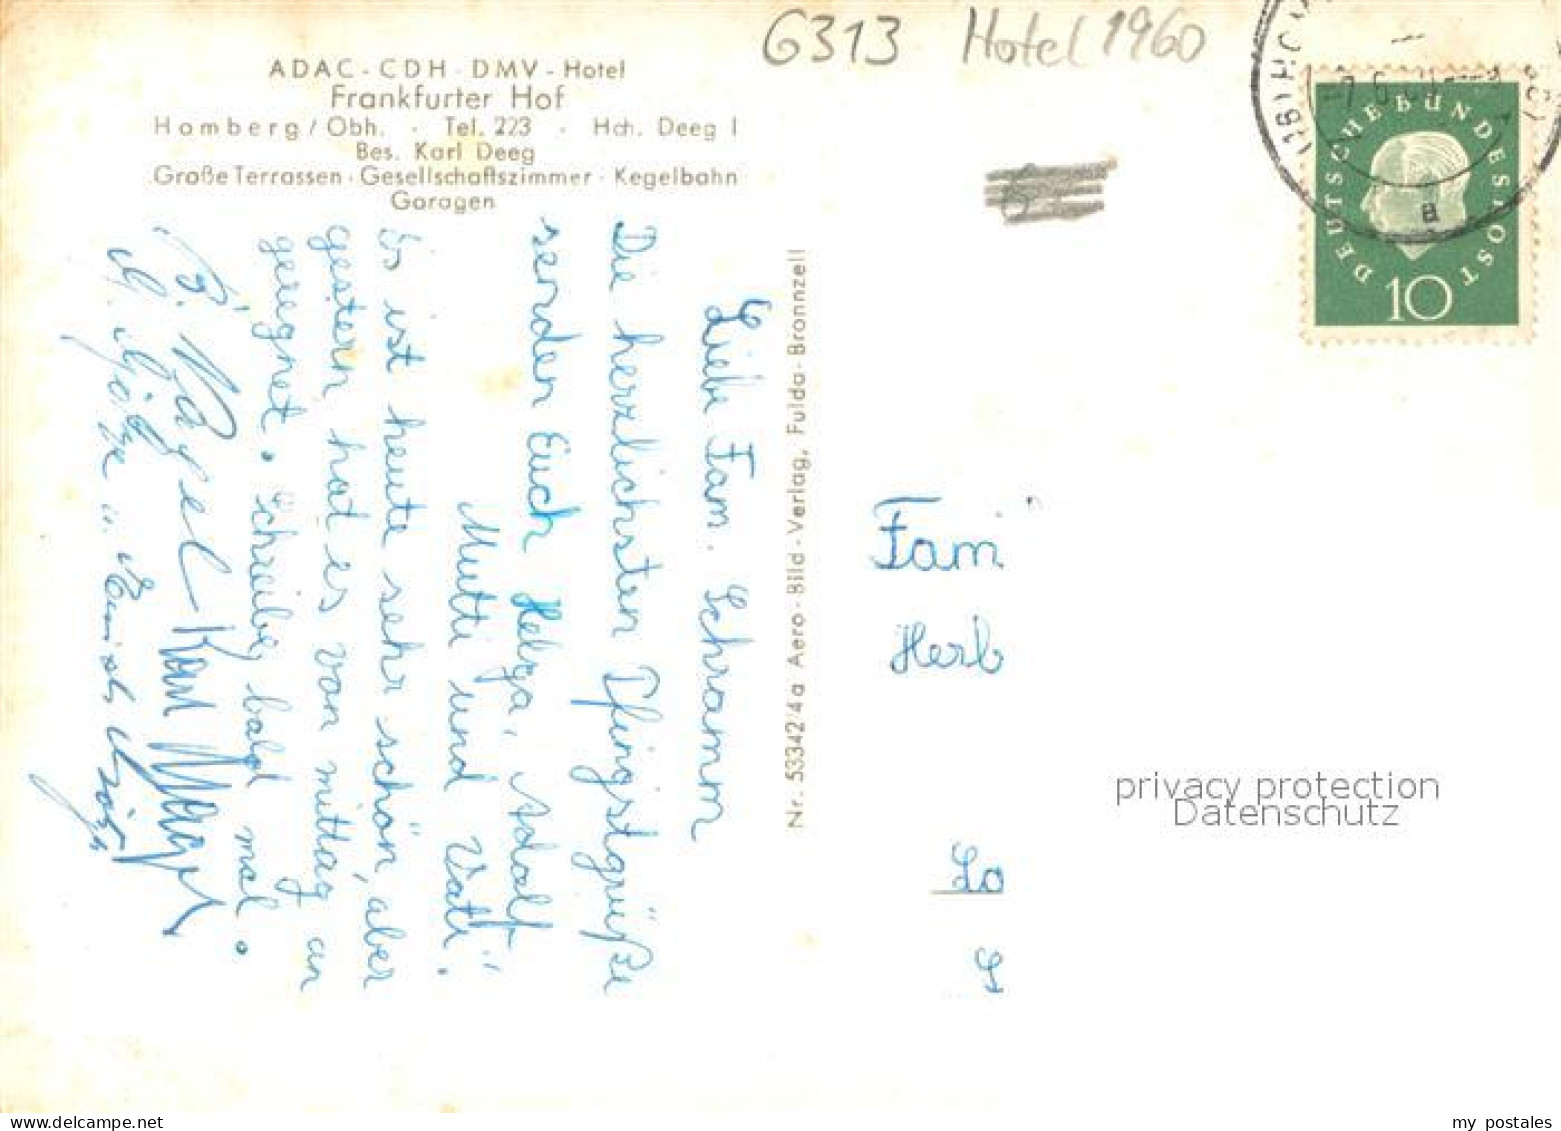 G313 Hotel 1960
ADAC - CDH - DMV - Hotel
Frankfurter Hof
Homberg / Obh. · Tel. 223 · Hch. Deeg I
Bes. Karl Deeg
Große Terrassen · Gesellschaftszimmer · Kegelbahn
Garagen
Liebe Fam. Schramm
Die herzlichsten Pfingstgrüße
senden Euch Helga, Adolf
Mutti und Vati.
Es ist heute sehr schön, aber
gestern hat es von mittag an
geregnet. Schreibe, bald mal.
Nagel Karl
Nr. 53342/4a Aero-Bild-Verlag, Fulda-Bronnzell
DEUTSCHE BUNDESPOST
10
a
Fam
Herb
Lo
S
privacy protection
Datenschutz
my postales